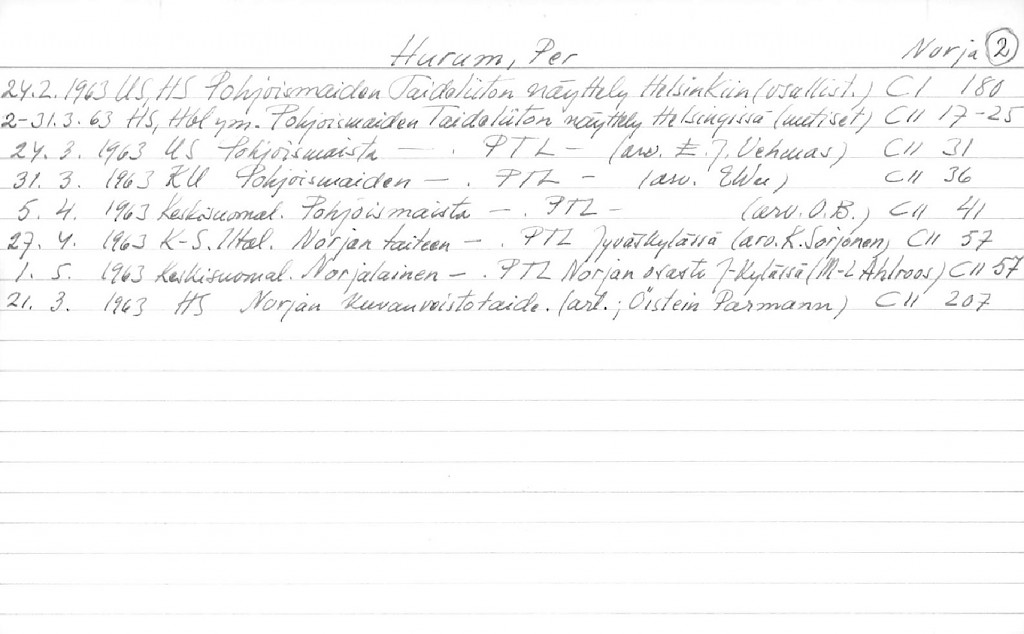 Hurum, Per Norja 2
24.2.1963 US, HS Pohjoismaiden Taideliiton näyttely Helsinkiin (osallist.) CI 180
2-31.3.63 HS, Hbl ym. Pohjoismaiden Taideliiton näyttely Helsingissä (uutiset) CII 17-25
24. 3. 1963 US Pohjoismaista — . PTL - (arv. E. J. Vehmas) CII 31
31. 3. 1963 KU Pohjoismaiden — . PTL - (arv. EWu) CII 36
5. 4. 1963 Keskisuomal. Pohjoismaista — . PTL - (arv. O.B.) CII 41
27. 4. 1963 K-S. Iltal. Norjan taiteen — . PTL Jyväskylässä (arv. K. Sorjonen) CII 57
1. 5. 1963 Keskisuomal. Norjalainen — . PTL Norjan osasto J-kylässä (M-L Ahlroos) CII 57
21. 3. 1963 HS Norjan kuvanveistotaide. (art.; Öistein Parmann) CII 207